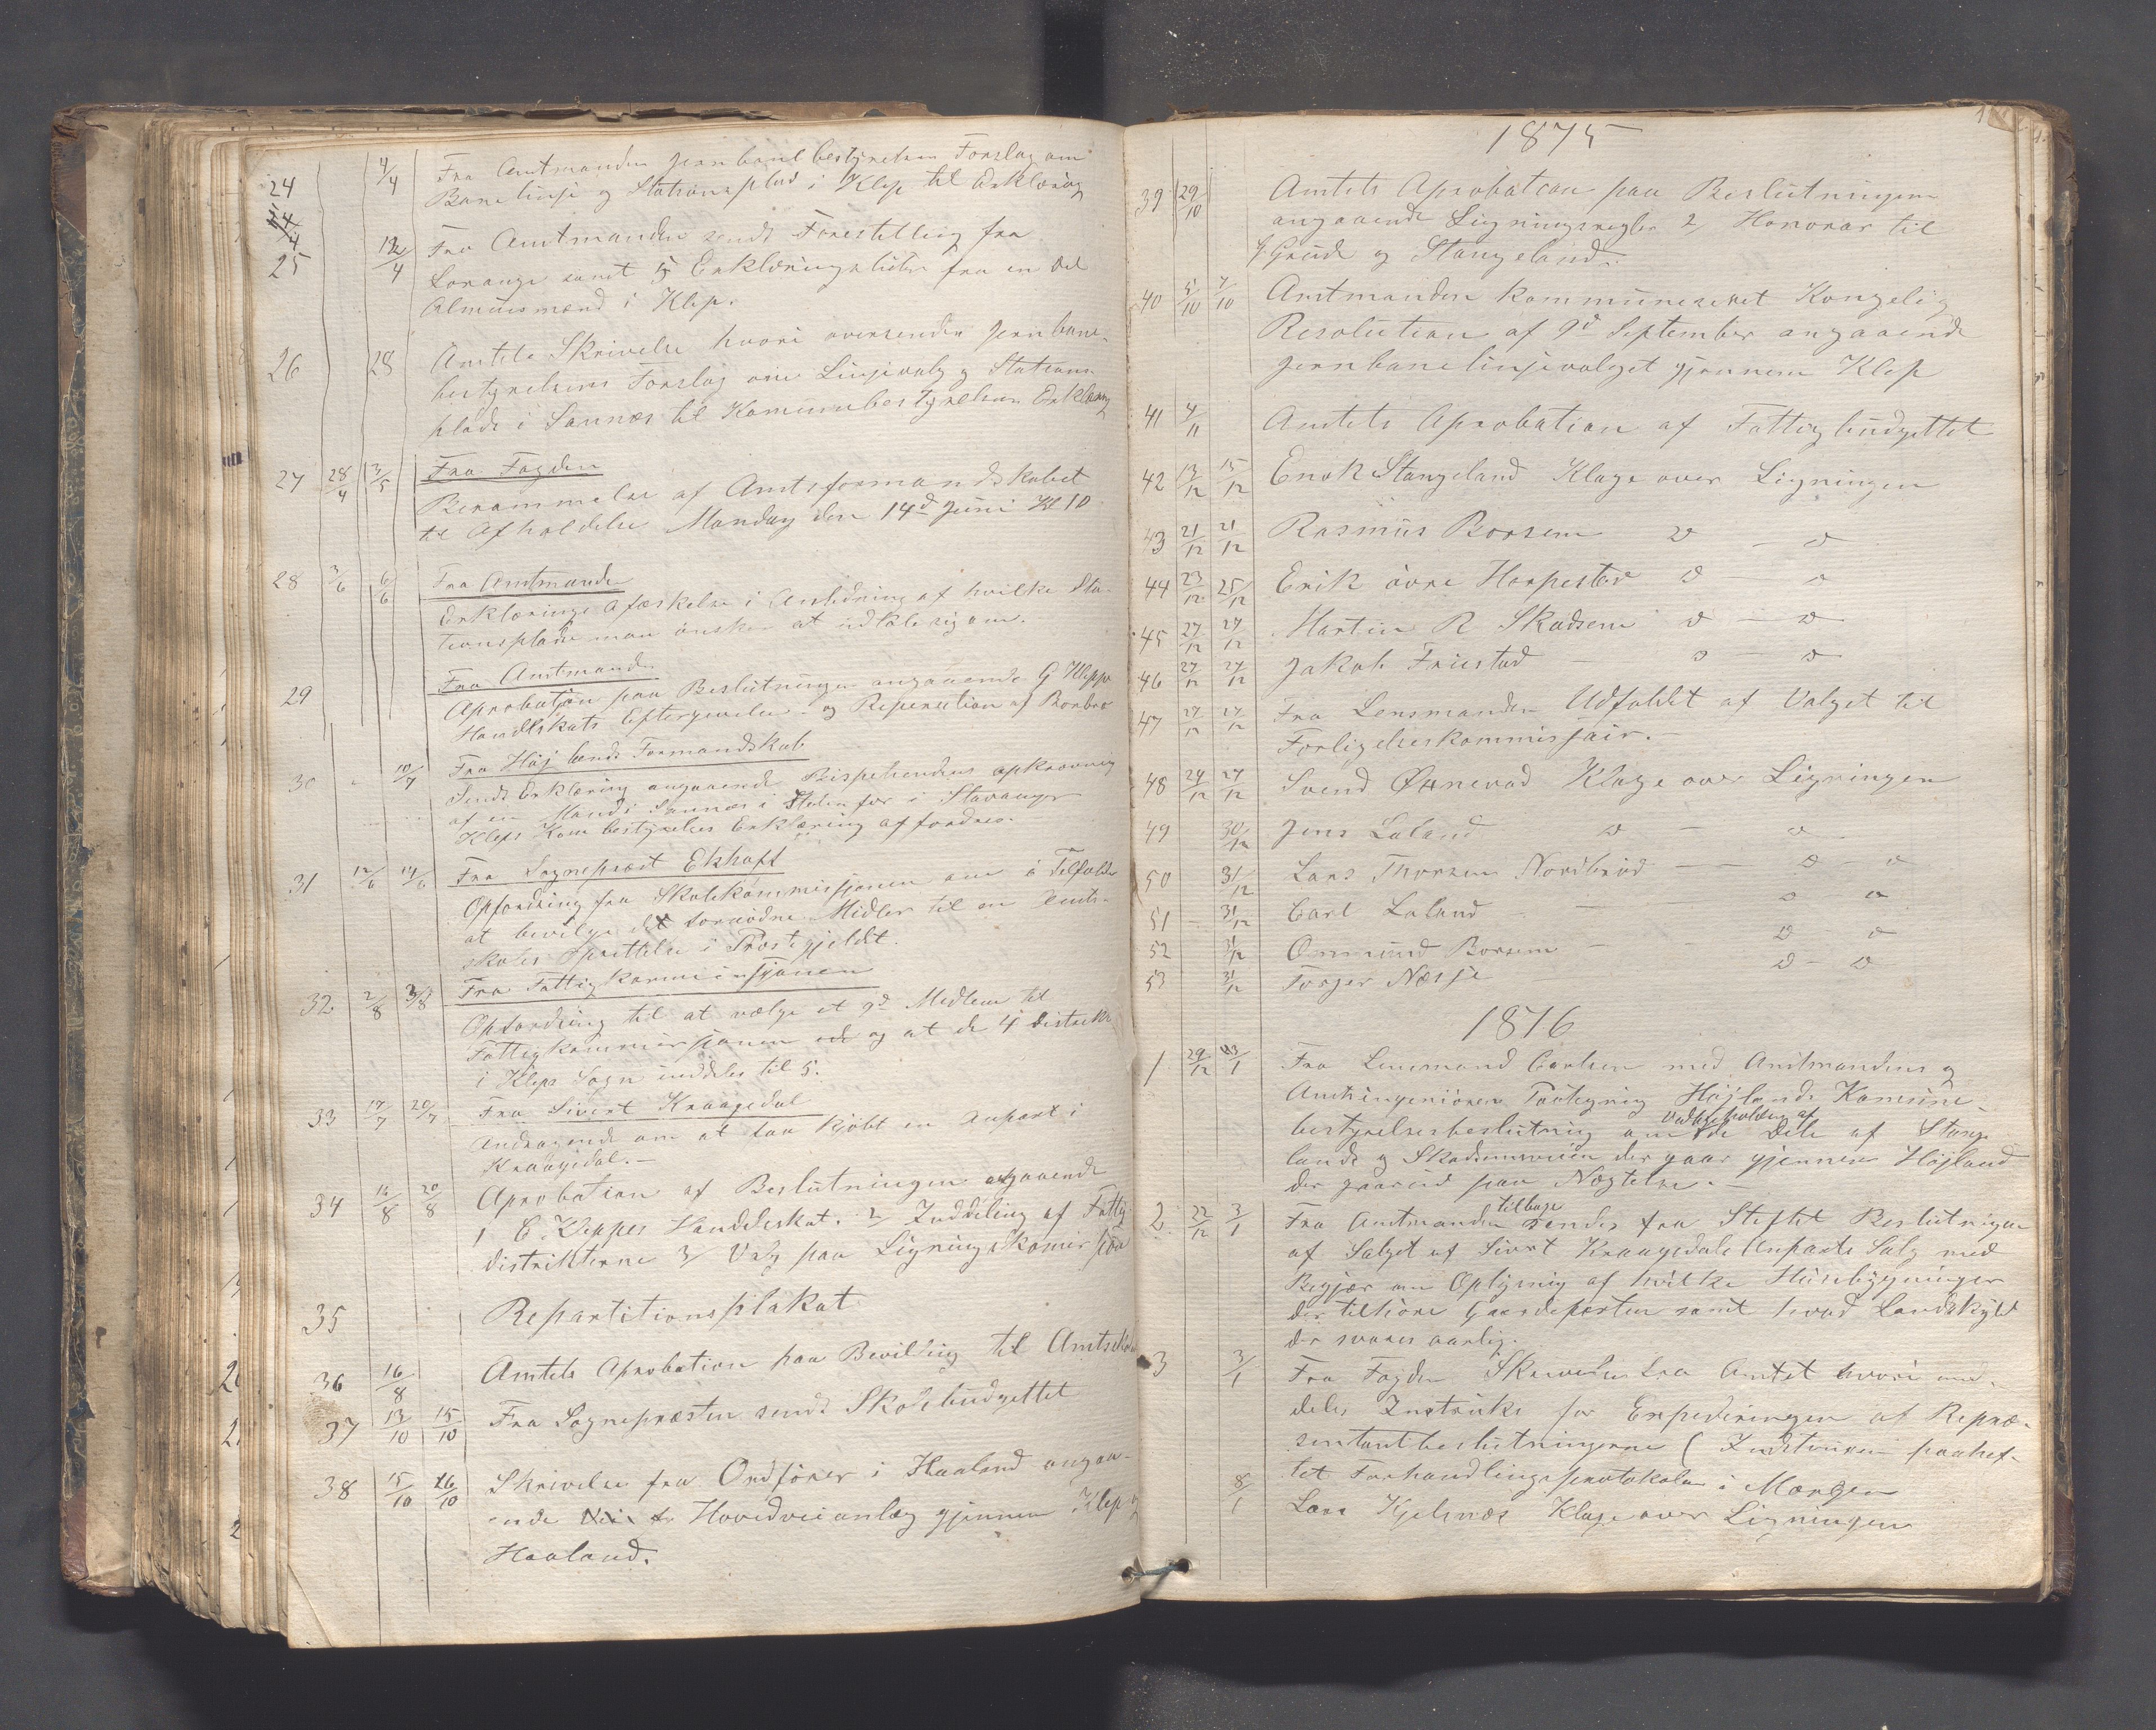 24 4/4 Fra Amtmanden Jernbanebestyrelsens Forslag om
Banelinje og Stationsplads i Klep til Erklæring
25 12/4 Fra Amtmanden sendt Forestilling fra
Lorange samt 5 Erklæringslister fra en Del
Almuesmænd i Klep.
26 28 Amtets Skrivelse hvori oversendes Jernbane-
bestyrelsens Forslag om Linjevalg og Stations
plads i Sannæs til Kommunebestyrelsens Erklæring
27 28/4 3/5 Fra Fogden
Berammelse af Amtsformandskabet
til Afholdelse Mandag den 14d Juni Kl 10
28 3/6 6/6 Fra Amtmanden
Erklærings Afæskelse i Anledning af hvilke Sta-
tionsplade man ønsker at udtale sig om.
29 Fra Amtmanden
Aprobation paa Beslutningen angaaende G Kleppe
Handelskats Eftergivelse og Reperation af
30 - 10/7 Fra Højlands Formandskab
Sendt Erklæring angaaende Bispestiendens opkrævning
af en Mand i Sannæs i Steden for i Stavanger
Kleps Kom bestyrelses Erklæring affordres.
31 12/6 14/6 Fra Sognepræst Ekhoff
Opfordring fra Skolekommissjonen om i Tilfælde
at bevilge de fornødne Midler til en Amts-
skoles Oprettelse i Præstegjeldet.
32 2/8 3/8 Fra Fattigkommissjonen
Opfordring til at vælge et 9d Medlem til
Fattigkommissjonen og at de 4 Distrikt
i Klep Sogn inddeles til 5.
33 17/7 20/7 Fra Sivert Kraagedal
Andragende om at faa kjøbt en Anpart i
Kraagedal.-
34 16/8 20/8 Aprobation af Beslutningen angaaende
1 E. Kleppes Handelskat. 2/ Inddeling af Fattig
distrikterne 3/ Valg paa Ligningskomissjon
35 Repartitionsplakat
36 16/8 Amtets Aprobation paa Bevilling til Amtsskole
37 13/10 15/10 Fra Sognepræsten sendt Skolebudgettet
38 15/10 26/10 Skrivelse fra Ordfører i Haaland angaa-
ende Hovedveianlæg gjennem Klep og
Haaland.
1875
39 29/10 Amtets Aprobation paa Beslutningen
angaaende Ligningsregler 2, Honorar til
G. Grude og Stangeland.
40 5/10 7/10 Amtmanden kommuneseret Kongelig
Resolution af 9d September angaaende
Jernbanelinjevalget gjennem Klep
41 4/11 Amtets Aprobation af Fattigbudgettet
42 13/12 15/12 Enok Stangeland Klage over Ligningen
43 21/12 21/12 Rasmus Borsem d - d
44 23/12 25/12 Erik øvre Horpestad d - d
45 27/12 27/12 Martin R Skadsem d - d
46 27/12 27/12 Jakob Friestad - d - d
47 27/12 27/12 Fra Lensmanden Udfaldet af Valget til
Forligelseskommissair.-
48 24/12 27/12 Svend Ørnevad Klage over Ligningen
49 30/12 Jens Laland d - d
50 31/12 Lars Thorsen Nordbraad - - d - d
51 - 31/12 Carl Laland - d d
52 31/12 Ommund Borsem - d - d
53 31/12 Torger Næsje d - d
1876
1 29/12 3/1 Fra Lensmand Carlsen med Amtmandens og
Amtsingeniøren Paategning Højlands Komune-
bestyrelsesbeslutning om Vedligeholdelse af de Dele af Stange
lands og Skadsemveien der gaar gjennem Højland
der gaar ud paa Nægtelse.-
2 22/12 3/1 Fra Amtmanden tilbage sendes fra Stiftet Beslutningen
af Salget af Sivert Kraagedals Anparts Salg med
Begjær om Oplysning af hvilke Husebygninger
der tilhøre Gaardeparten samt hvad Landskyld
der svares aarlig.
3 3/1 Fra Fogden Skrivelse fra Amtet hvori med-
deles Instruks for Expederingen af Repræ-
sentantbeslutningerne ( Instruxen paahef-
tet Forhandlingsprotokolen i Margen
8/1 Lars Kjelsnæs Klage over Ligningen